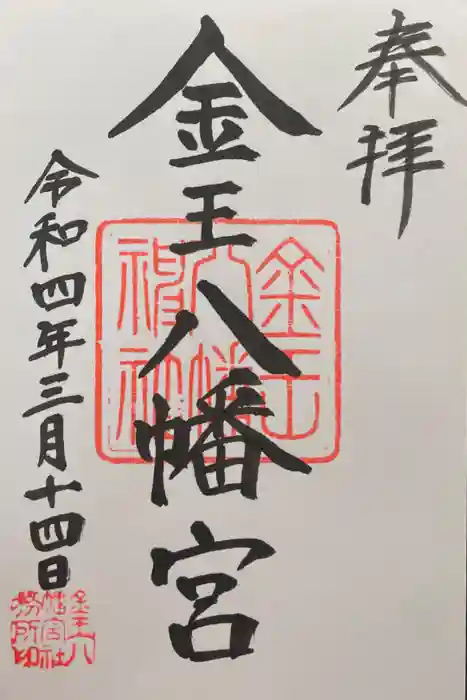 奉拝
金王八幡宮
金王八幡神社
令和四年三月十四日
金王八幡宮社務所印